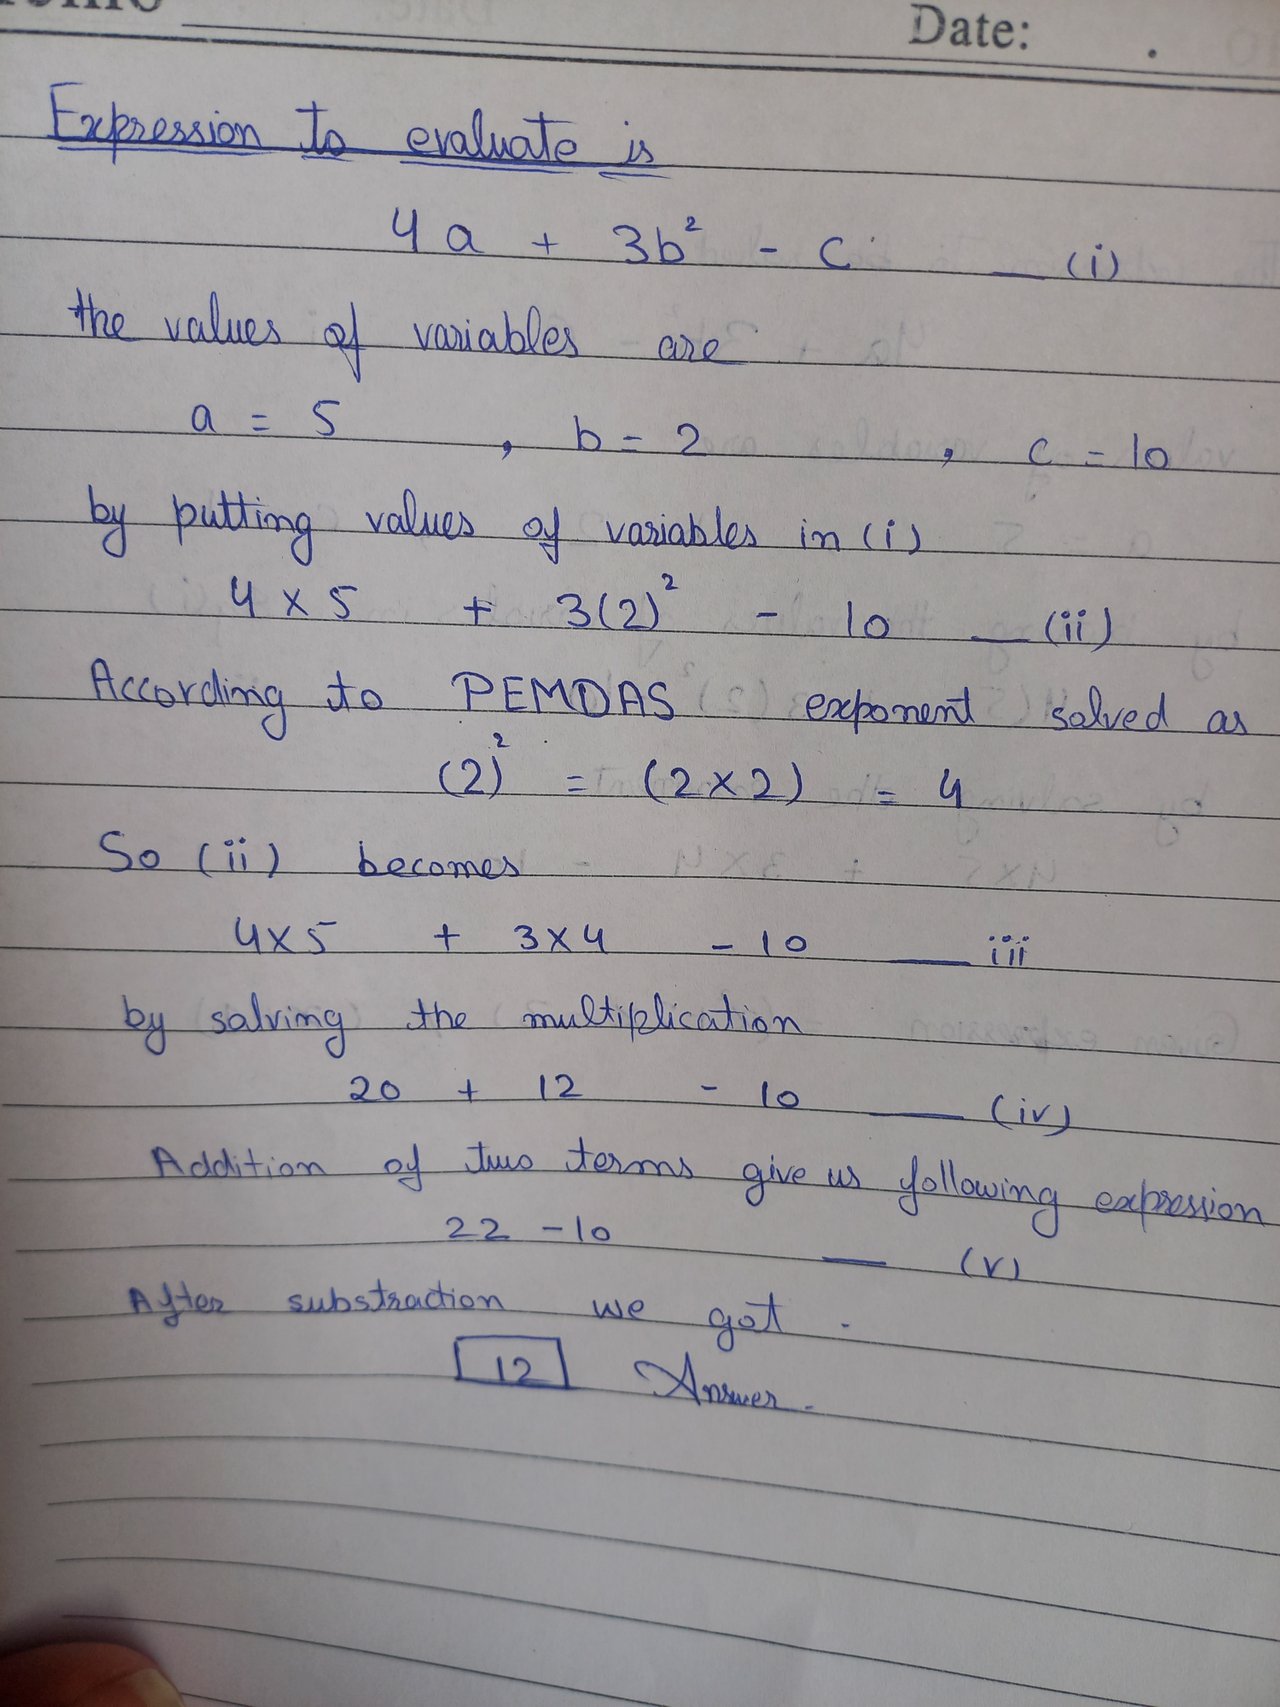 Date:
Expression to evaluate is
4a + 3b² - c — (i)
the values of variables are
a = 5 , b = 2 , c = 10
by putting values of variables in (i)
4 × 5 + 3(2)² - 10 — (ii)
According to PEMDAS exponent solved as
(2)² = (2 × 2) = 4
So (ii) becomes
4×5 + 3×4 - 10 — iii
by solving the multiplication
20 + 12 - 10 — (iv)
Addition of two terms give us following expression
22 - 10 — (v)
After substraction we got .
12 Answer.